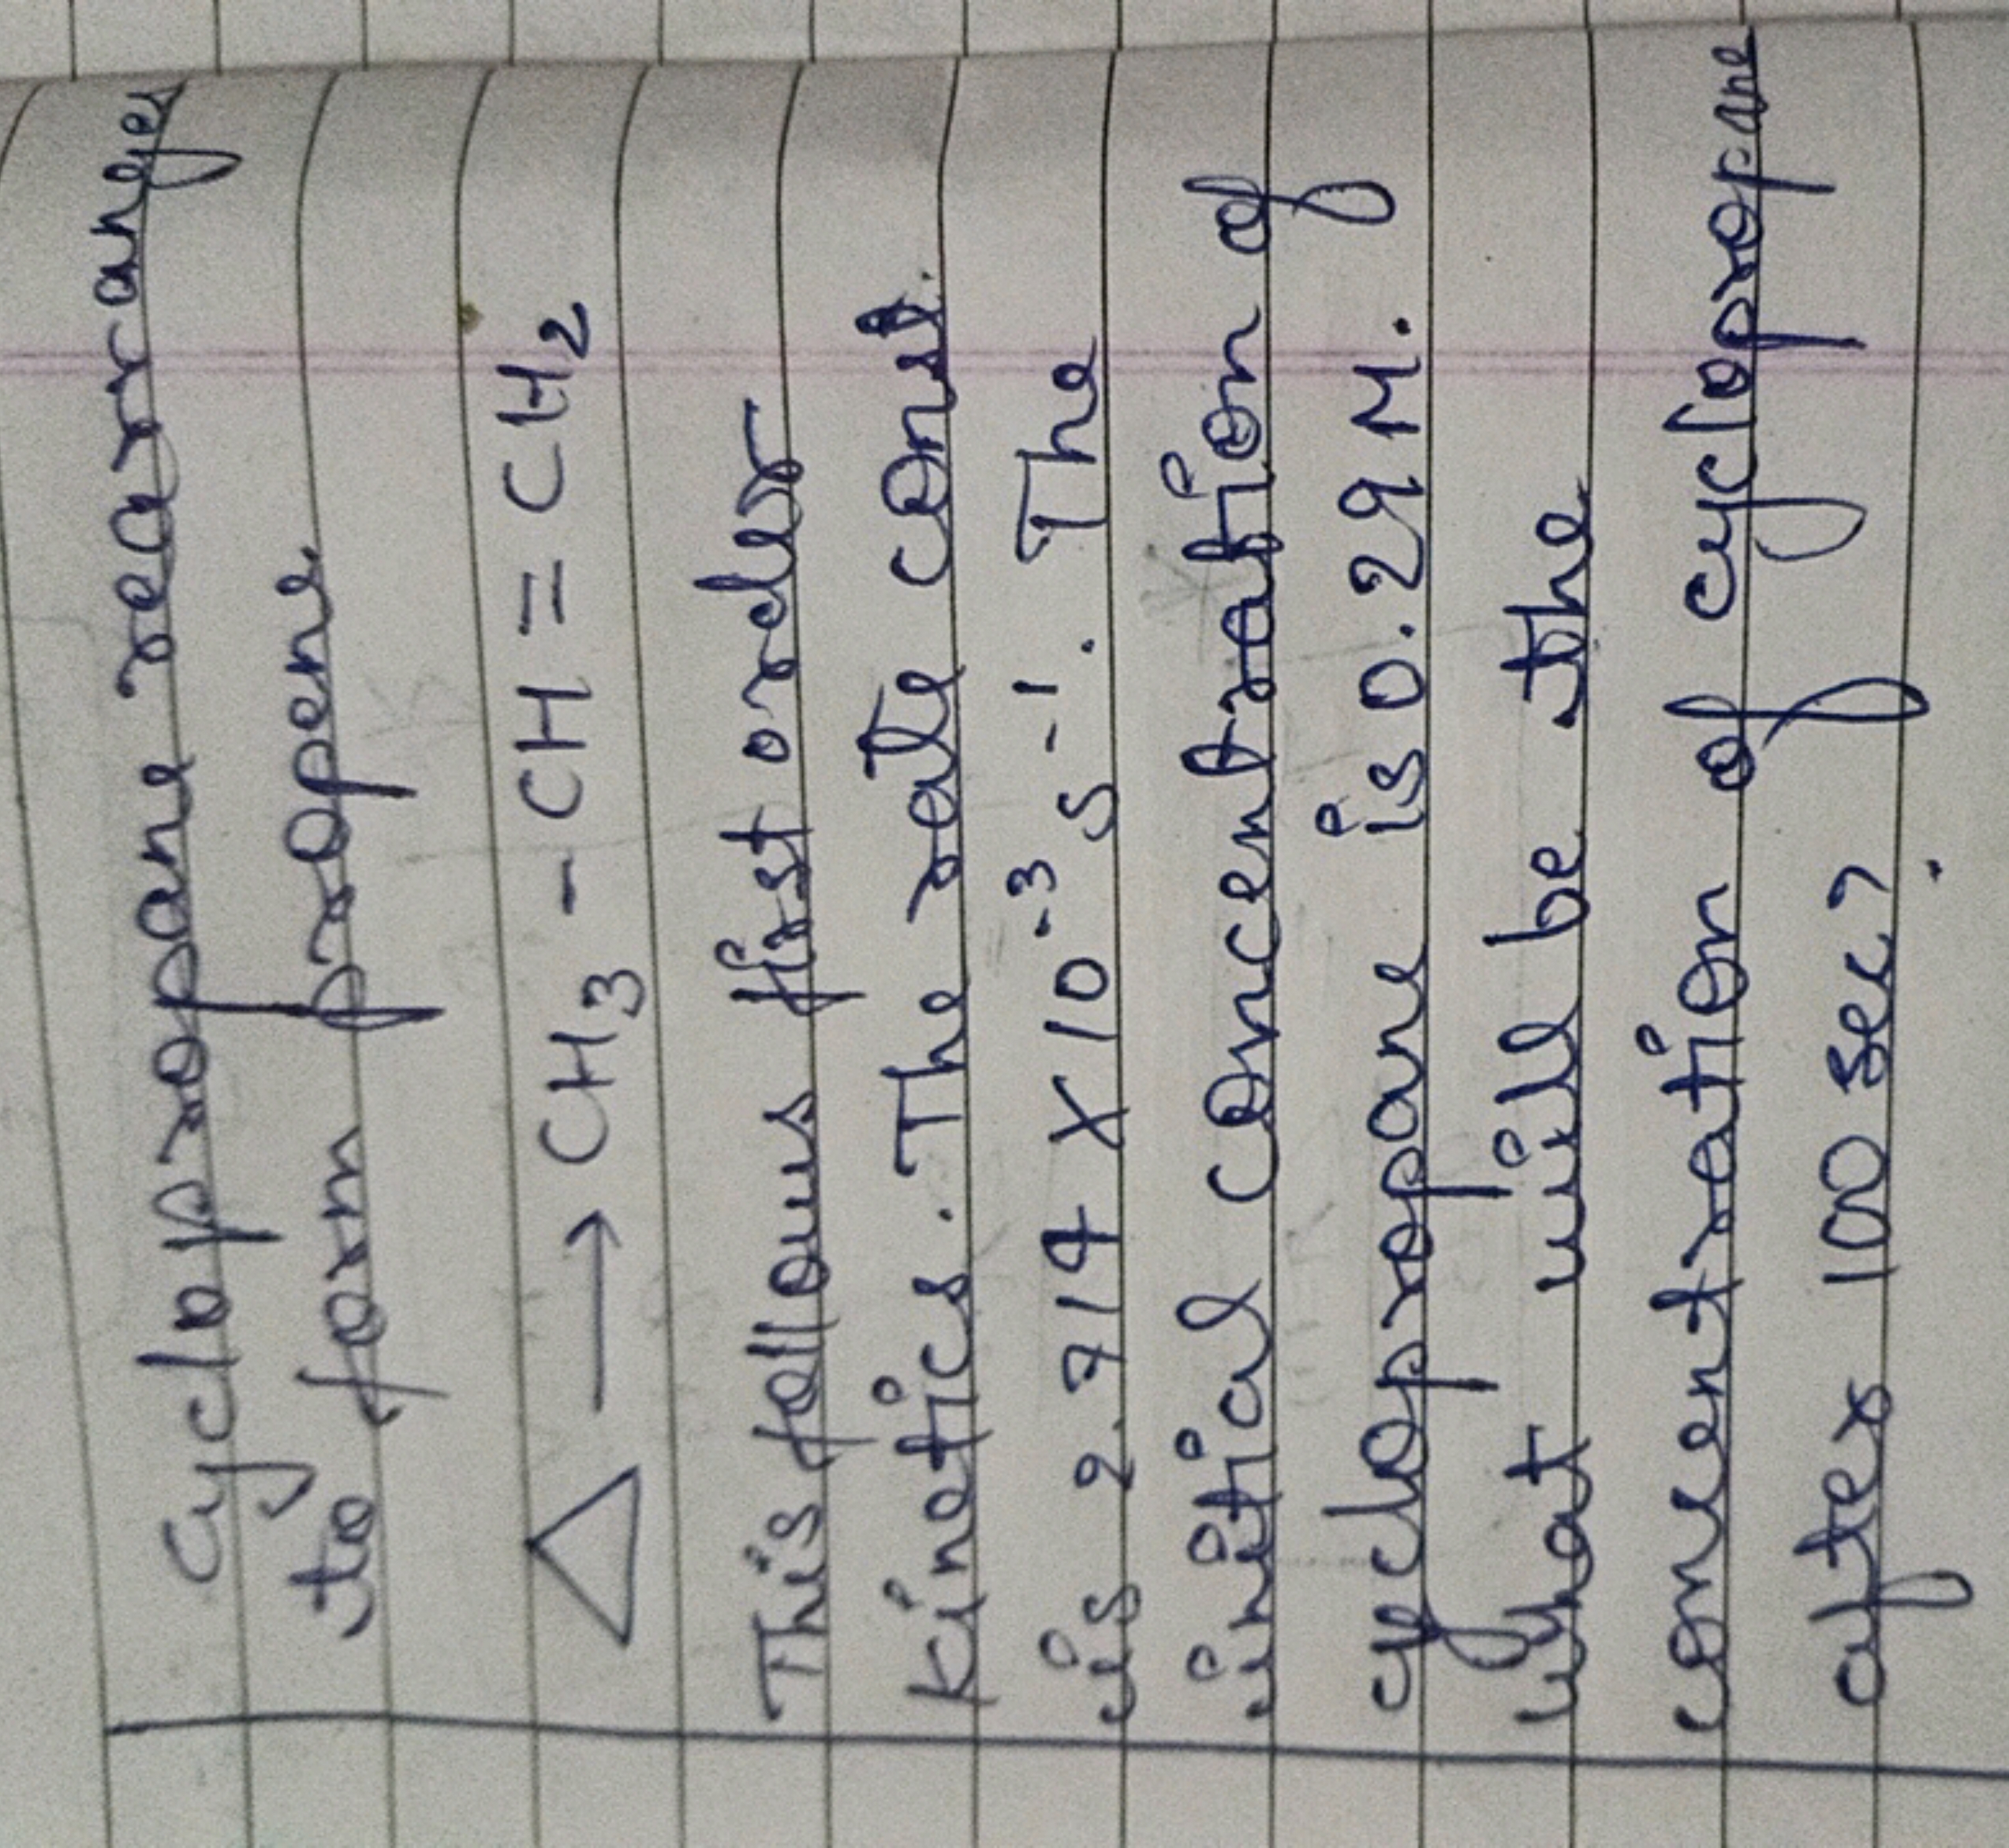 Cyclopropane rearranges
to form propene
△ → CH₃ - CH = CH₂
This follows first order
kinetics. The rate const.
is 2.714 × 10⁻³ s⁻¹. The
initial concentration of
cyclopropane is 0.29 M.
What will be the
concentration of cyclopropane
after 100 sec?